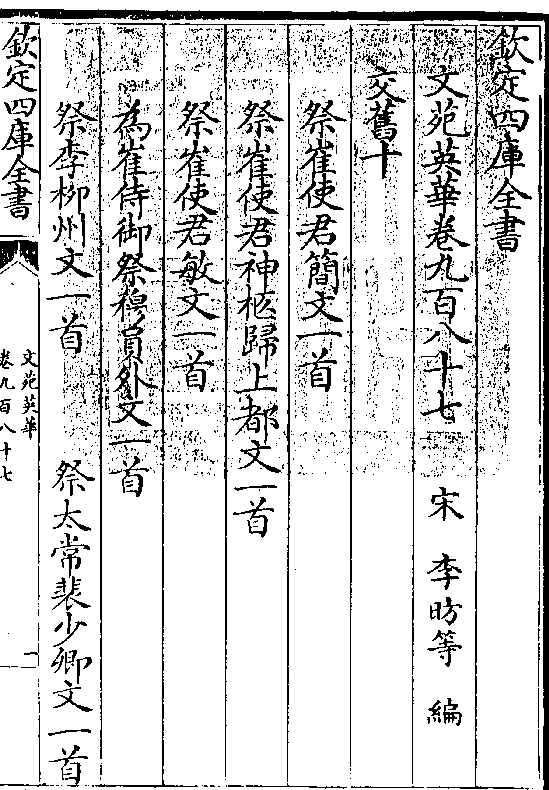 欽定四庫全書
文苑英華卷九百八十七　宋　李昉等　編
交舊十
祭崔使君簡文一首
祭崔使君神柩歸上都文一首
祭崔使君敏文一首
為崔侍御祭穆員外文一首
祭李柳州文一首　祭太常裴少卿文一首
欽定四庫全書
文苑英華
卷九百八十七
一